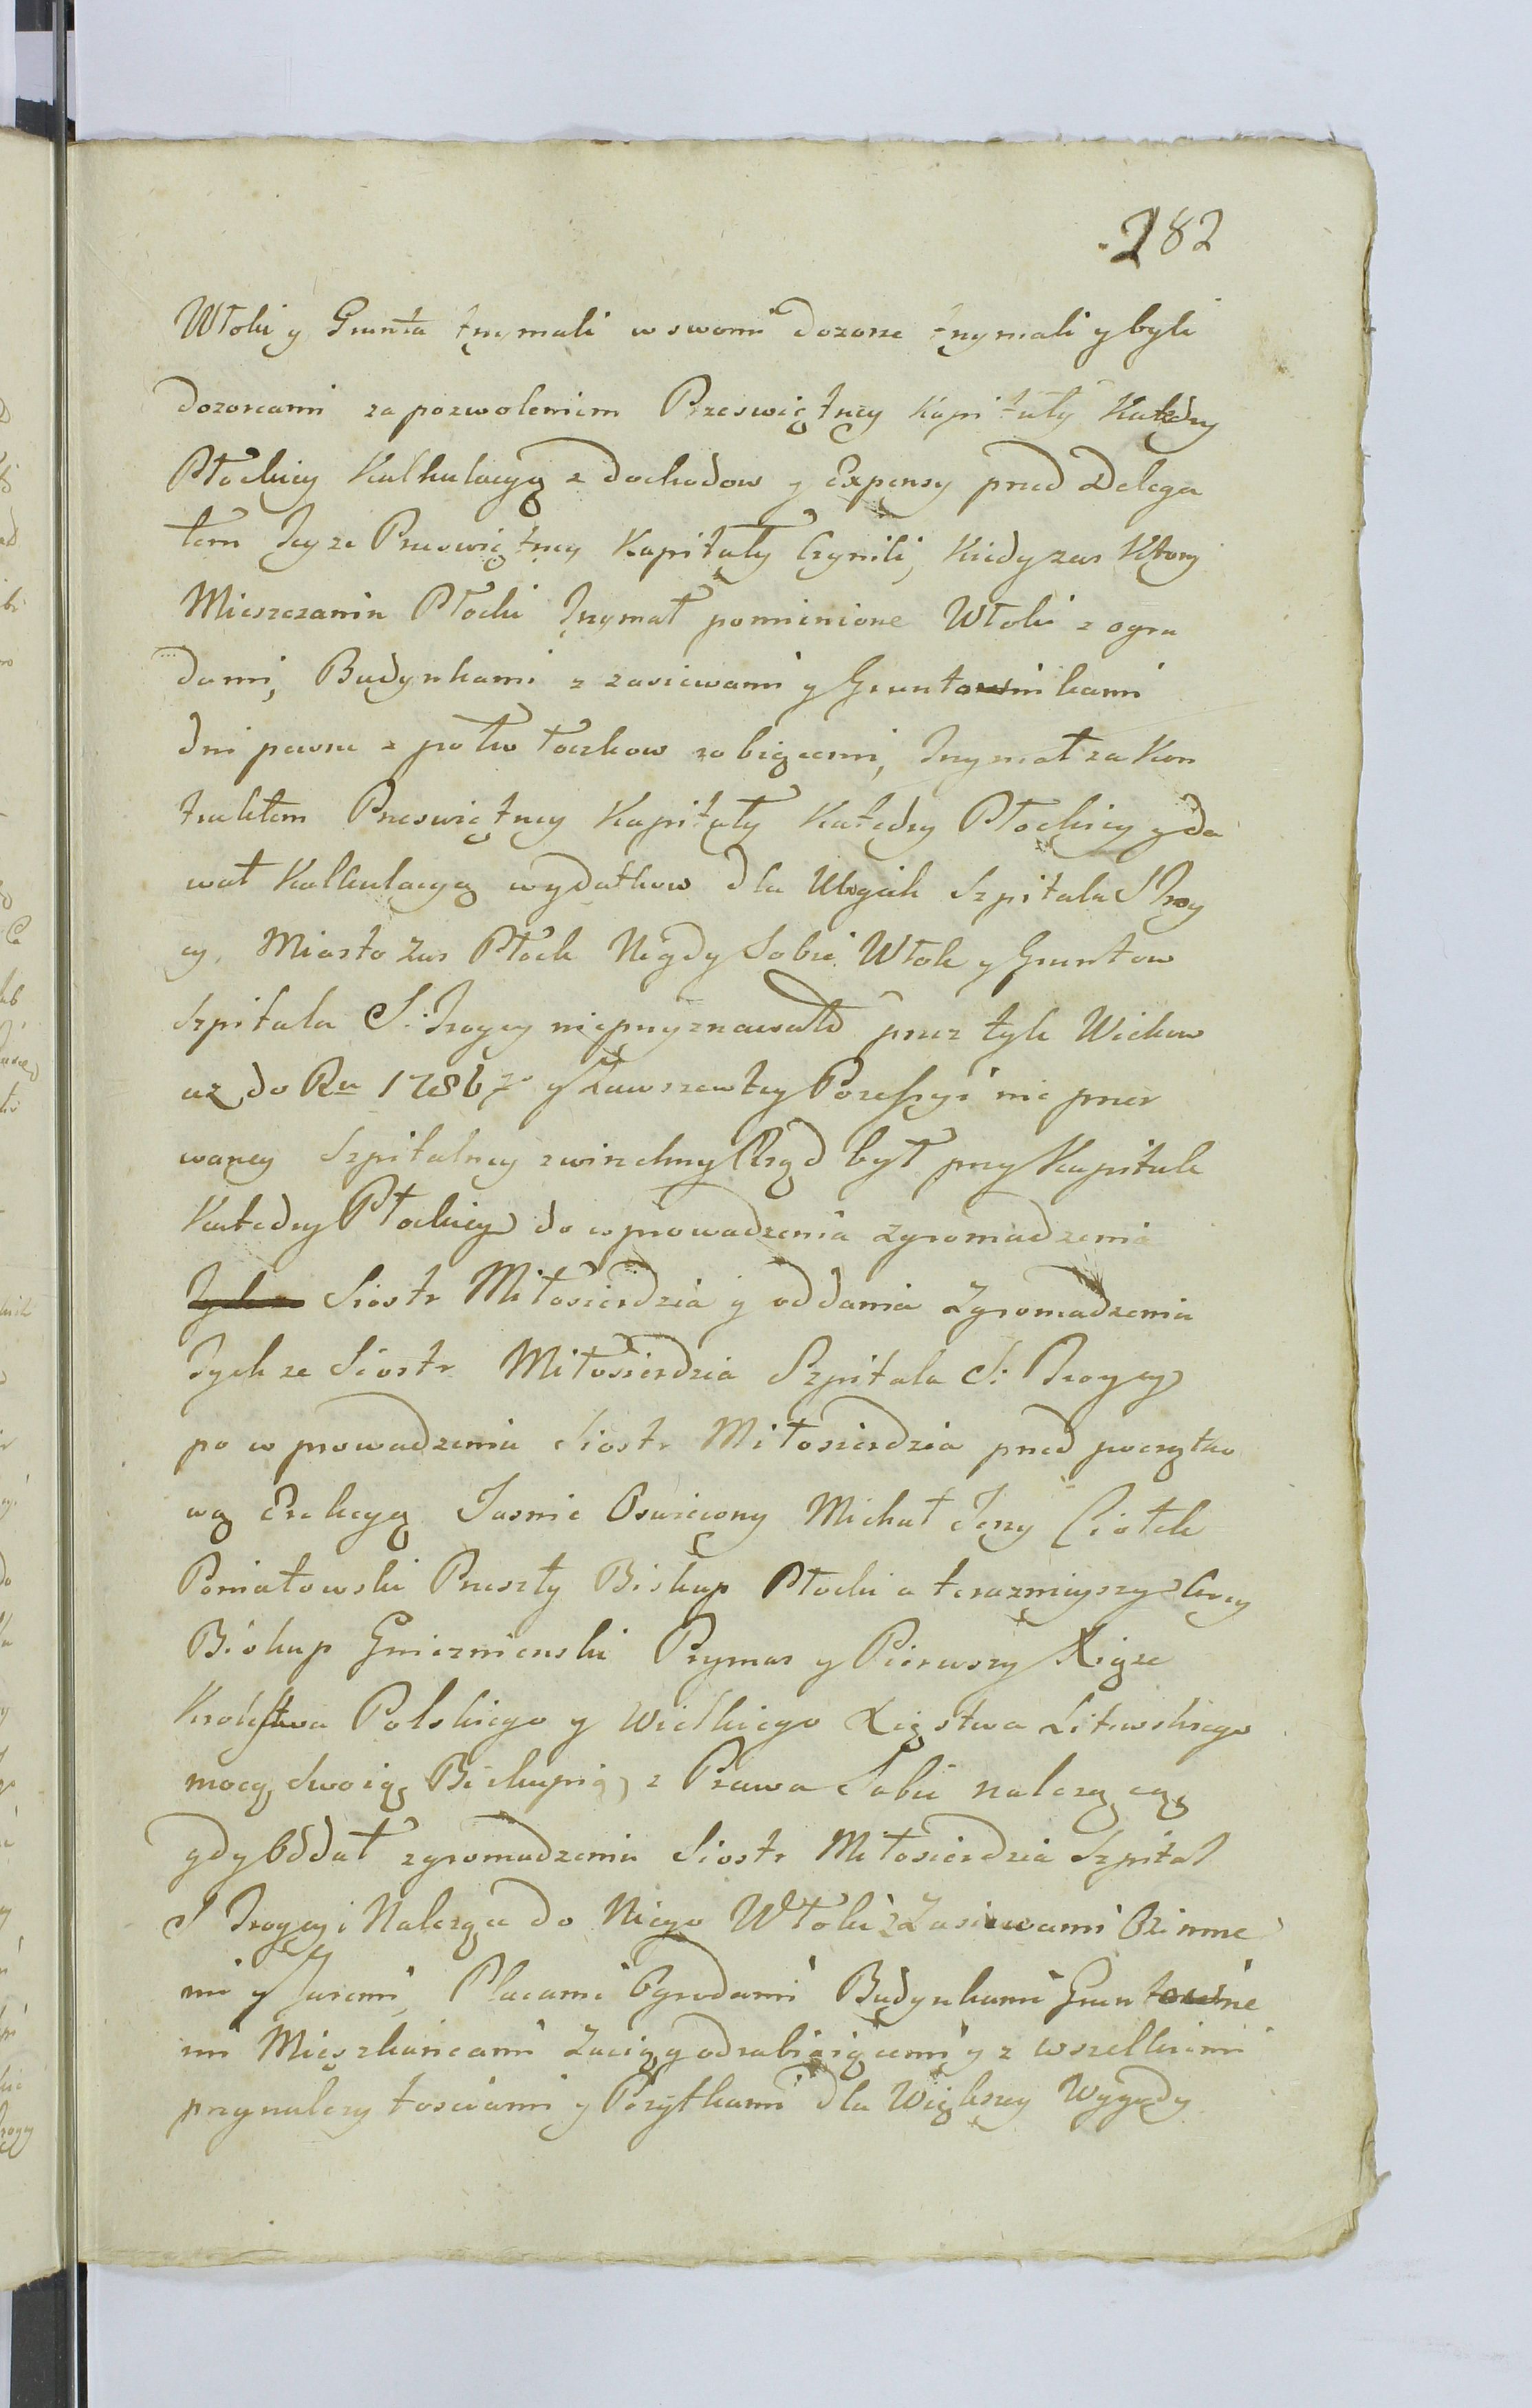 282
Włoki y Grunta trzymali w swoim dozorze trzymali y byli
dozorcami za pozwoleniem Przeswiętney Kapituły Katedry
Płockiey Kalkulacyą z dochodow y Expensy przed Delega
tem Teyze Przeswiętney Kapituły Czynili, Kiedy zas Ktory
Mieszczanin Płocki Trzymał pomienione Włoki z ogro
dami, Budynkami z zasiewami y Gruntownikami
dni pewne z połwłoczkow robiącemi, Trzymał za Kon
traktem Przeswiętney Kapituły Katedry Płockiey y da
wał Kalkulacyą wydatkow dla Ubogich Szpitala S Troy
cy, Miasto zas Płock Nigdy Sobie Włok y Gruntow
Szpitala S: Troycy nieprzyznawało przez tyle Wiekow
az do Ru 1786go y Zawsze w tey Possessyi nie przer
waney Szpitalney zwierzchny Rząd był przy Kapitule
Katedry Płockiey do wprowadzenia Zgromadzenia
Siostr Miłosierdzia y oddania Zgromadzeniu
Tychze Siostr Miłosierdzia Szpitala S: Troycy
po wprowadzeniu Siostr Miłosierdzia przed początko
wą Erekcyą Jasnie Oswiecony Michał Jerzy Ciołek
Poniatowski Przeszły Biskup Płocki a terazmieyszy Arcy
Biskup Gnieznienski Prymas y Pierwszy Xiąże
Krolestwa Polskiego y Wielkiego Xięstwa Litewskiego
mocą Swoią Biskupią, z Prawa Sobie nalezącą
gdy Oddał zgromadzeniu Siostr Miłosierdzia Szpital
S Troycy i Nalezące do Niego Włoki z Zasiewami Ozime
mi y Jaremi, Placami Ogrodami Budynkami Gruntowne
mi Mieszkancami Zaciąg odrabiaiącemi y z wszelkiemi
przynalezytosciami y Pozytkami dla Większey Wygody